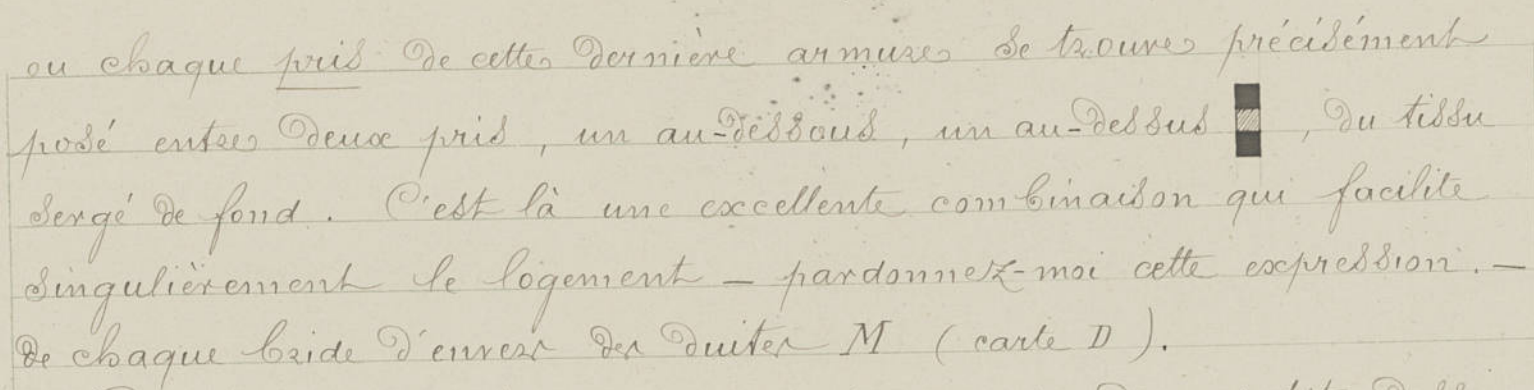 ou chaque pris de cette dernière armure se trouve précisément
posé entre deux pris, un au-dessous, un au-dessus , du tissu
sergé de fond. C'est là une excellente combinaison qui facilite
singulièrement le logement – pardonnez-moi cette expression. –
de chaque bride d'envers des duites M (carte D).